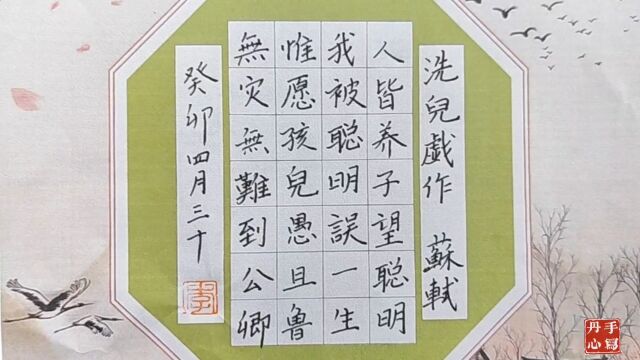 洗兒戲作 蘇軾
人皆养子望聪明
我被聪明誤一生
惟愿孩兒愚且魯
無灾無難到公卿
癸卯四月三十
李
手寫
丹心